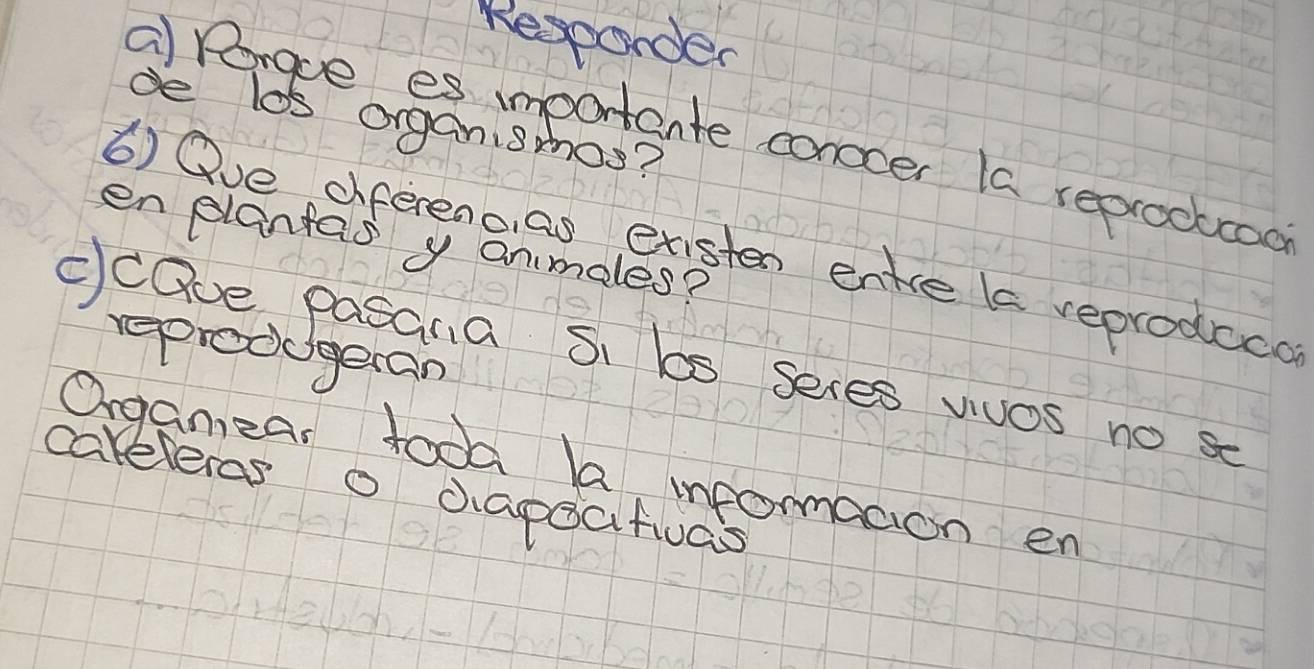 Responder
a) Porque es importante conocer la reproduccion
de los organismos?
b) Que diferencias existen entre la reproduccion
en plantas y animales?
c) ¿Que pasaria si los seres vivos no se
reprodugeran
Organizar toda la informacion en
careleras o diapocitivas